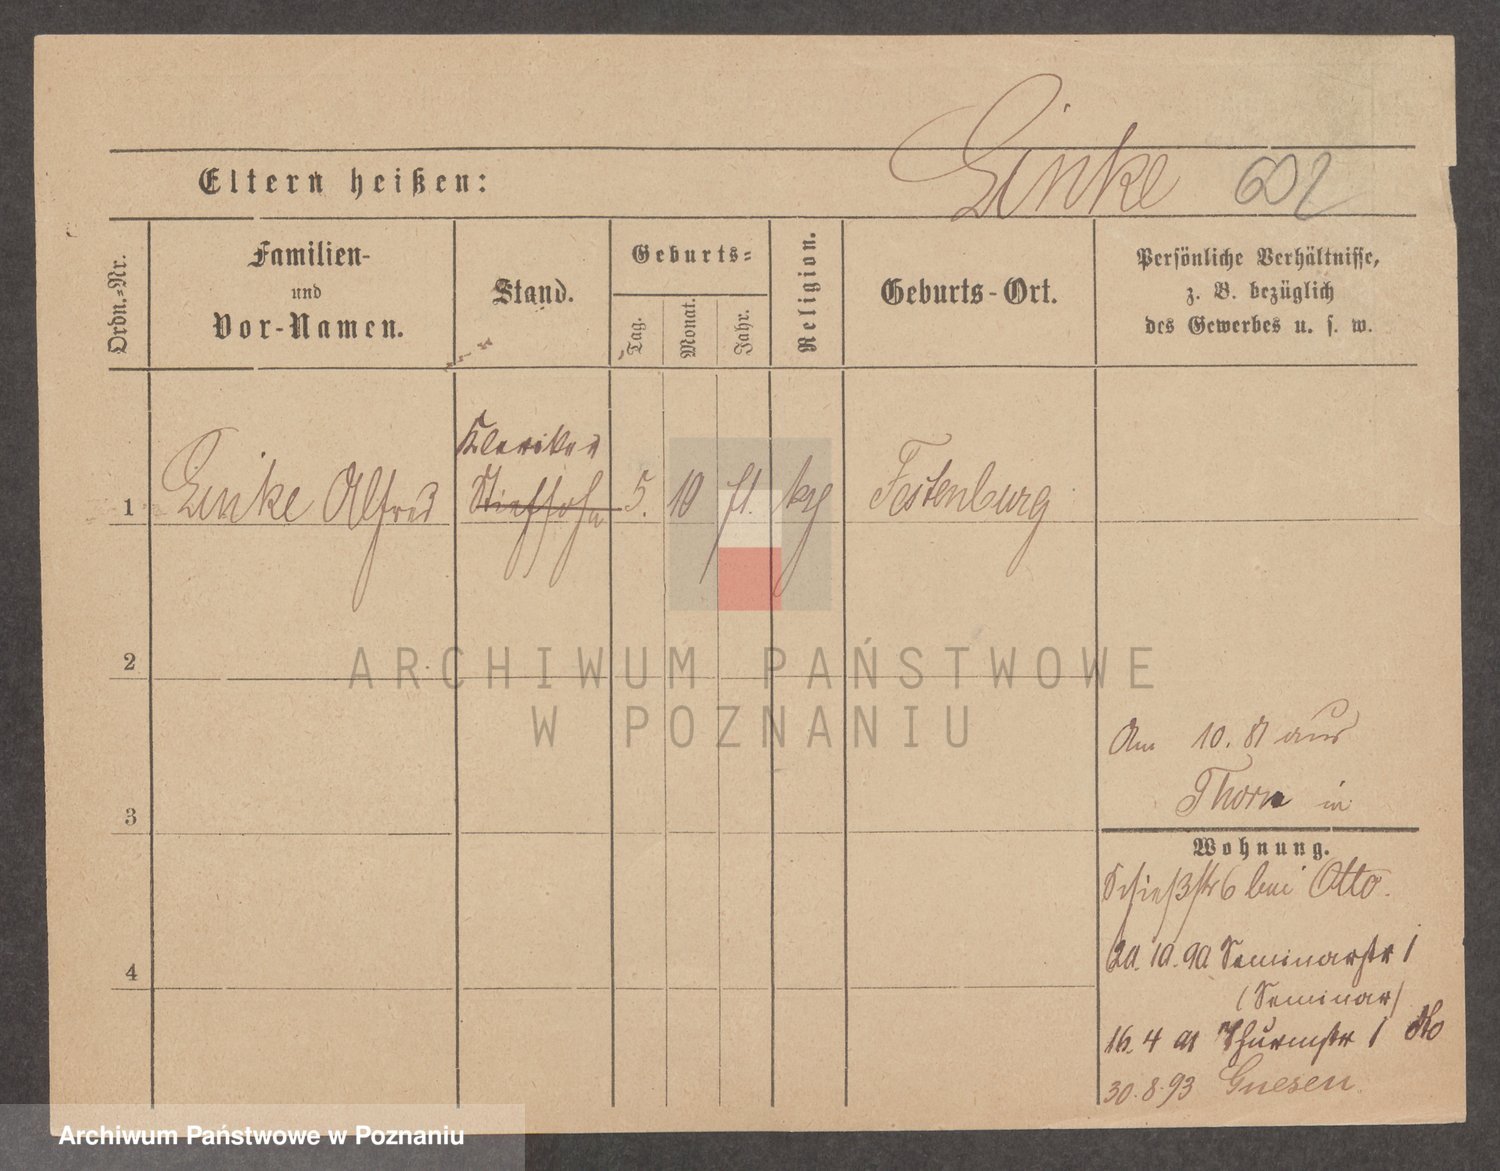 Ginke 602
Eltern heißen:
Ordn.-Nr.
Familien-
und
Vor-Namen.
Stand.
Geburts-
Tag.
Monat.
Jahr.
Religion.
Geburts-Ort.
Persönliche Verhältnisse,
z. B. bezüglich
des Gewerbes u. s. w.
Kleriker
1 Ginke Alfred Stiefsohn 5. 10 71. kg Festenburg
2
ARCHIWUM PAŃSTWOWE
W POZNANIU
Am 10. 81 aus
Thorn in
3
Wohnung.
Schießstr 6 bei Otto.
20.10.90 Seminarstr 1
4
(Seminar)
16.4 91 Thurmstr 1
30.8.93 Gnesen
Archiwum Państwowe w Poznaniu